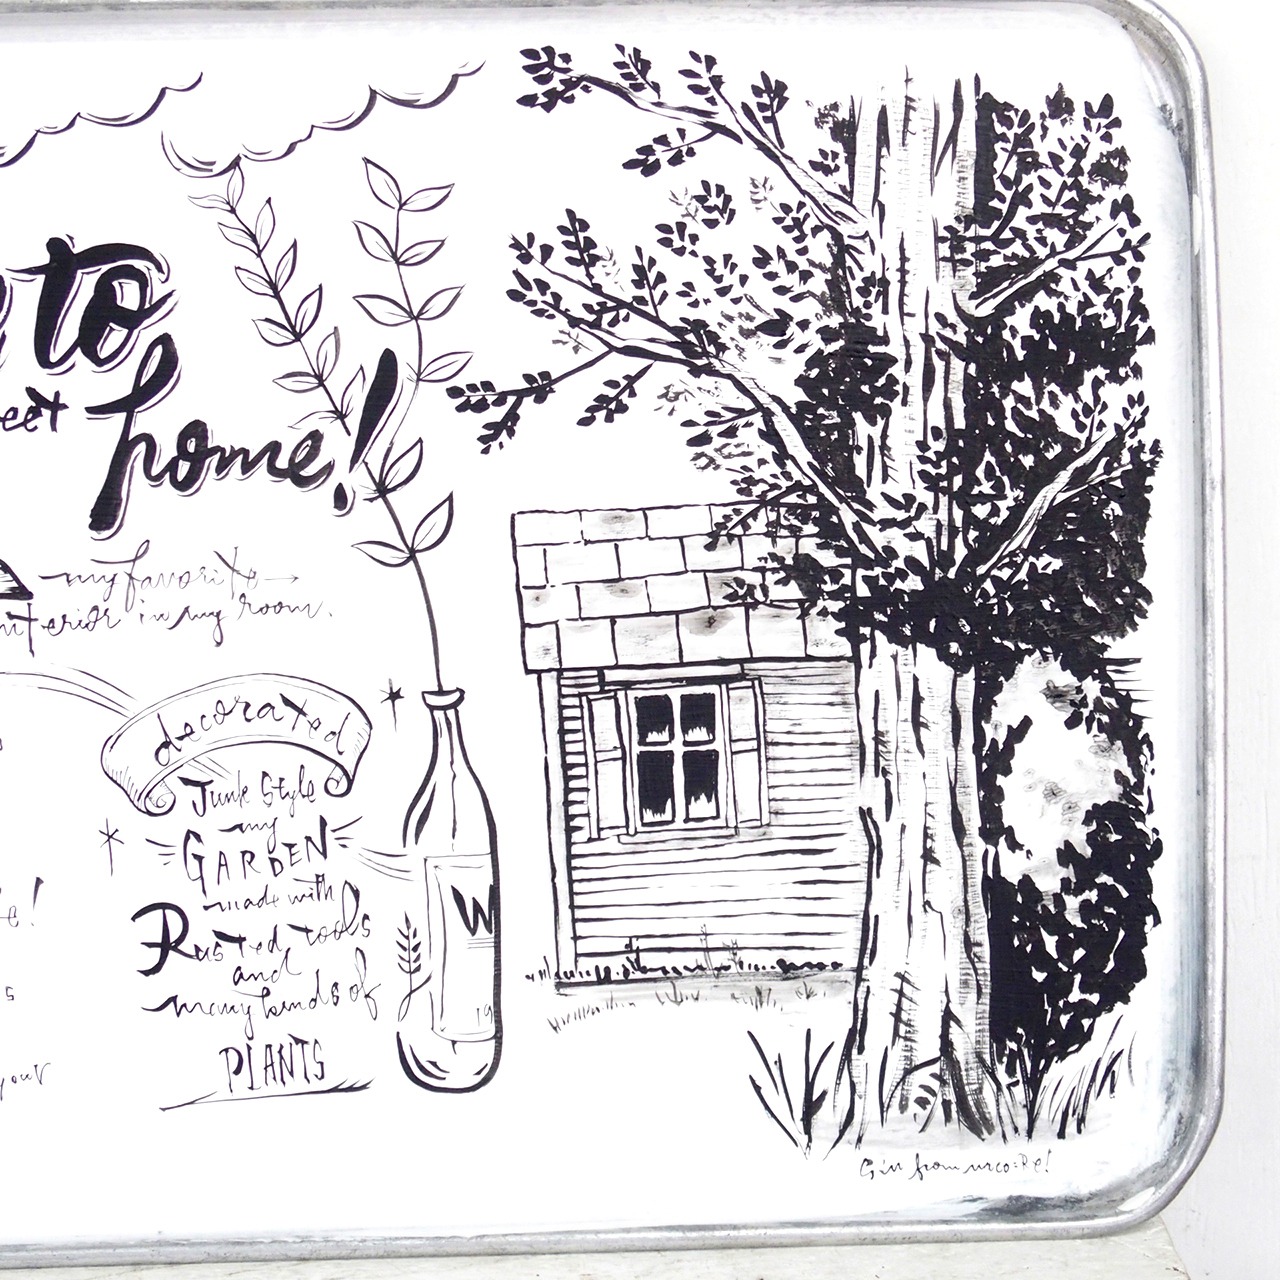 to
eet
home!
my favorite
interior in my room.
decorated
Junk Style
my
GARDEN
made with
Rusted tools
and
many kinds of
PLANTS
e!
s
your
W
19
Gin from